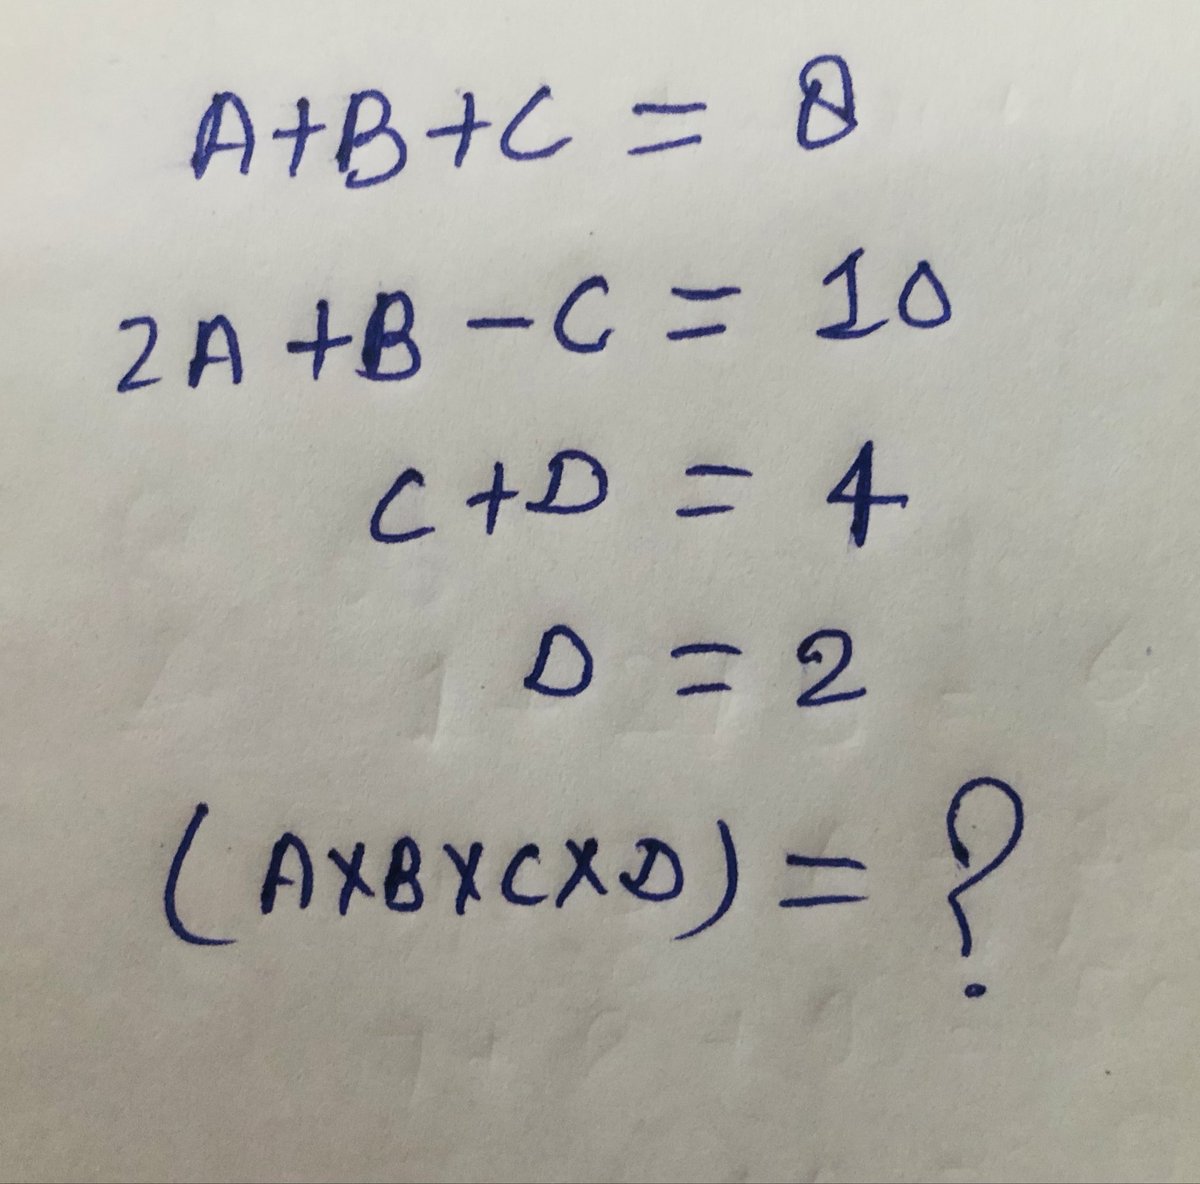 A+B+C = 8
2A+B-C = 10
C+D = 4
D = 2
(A×B×C×D) = ?